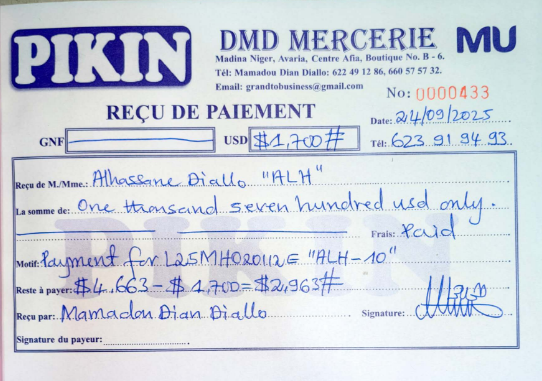 PIKIN
DMD MERCERIE MU
Madina Niger, Avaria, Centre Afia, Boutique No. B - 6.
Tél: Mamadou Dian Diallo: 622 49 12 86, 660 57 57 32.
Email: grandtobusiness@gmail.com
No: 0000433
REÇU DE PAIEMENT
Date: 24/09/2025
GNF USD $1,700#
Tél: 623 91 94 93
Reçu de M./Mme.: Alhassane Diallo "ALH"
La somme de: One thousand seven hundred usd only.
Frais: Paid
Motif: Payment for L25MH020112E "ALH-10"
Reste à payer: $4,663 - $1,700 = $2,963#
Reçu par: Mamadou Dian Diallo Signature:
Signature du payeur: